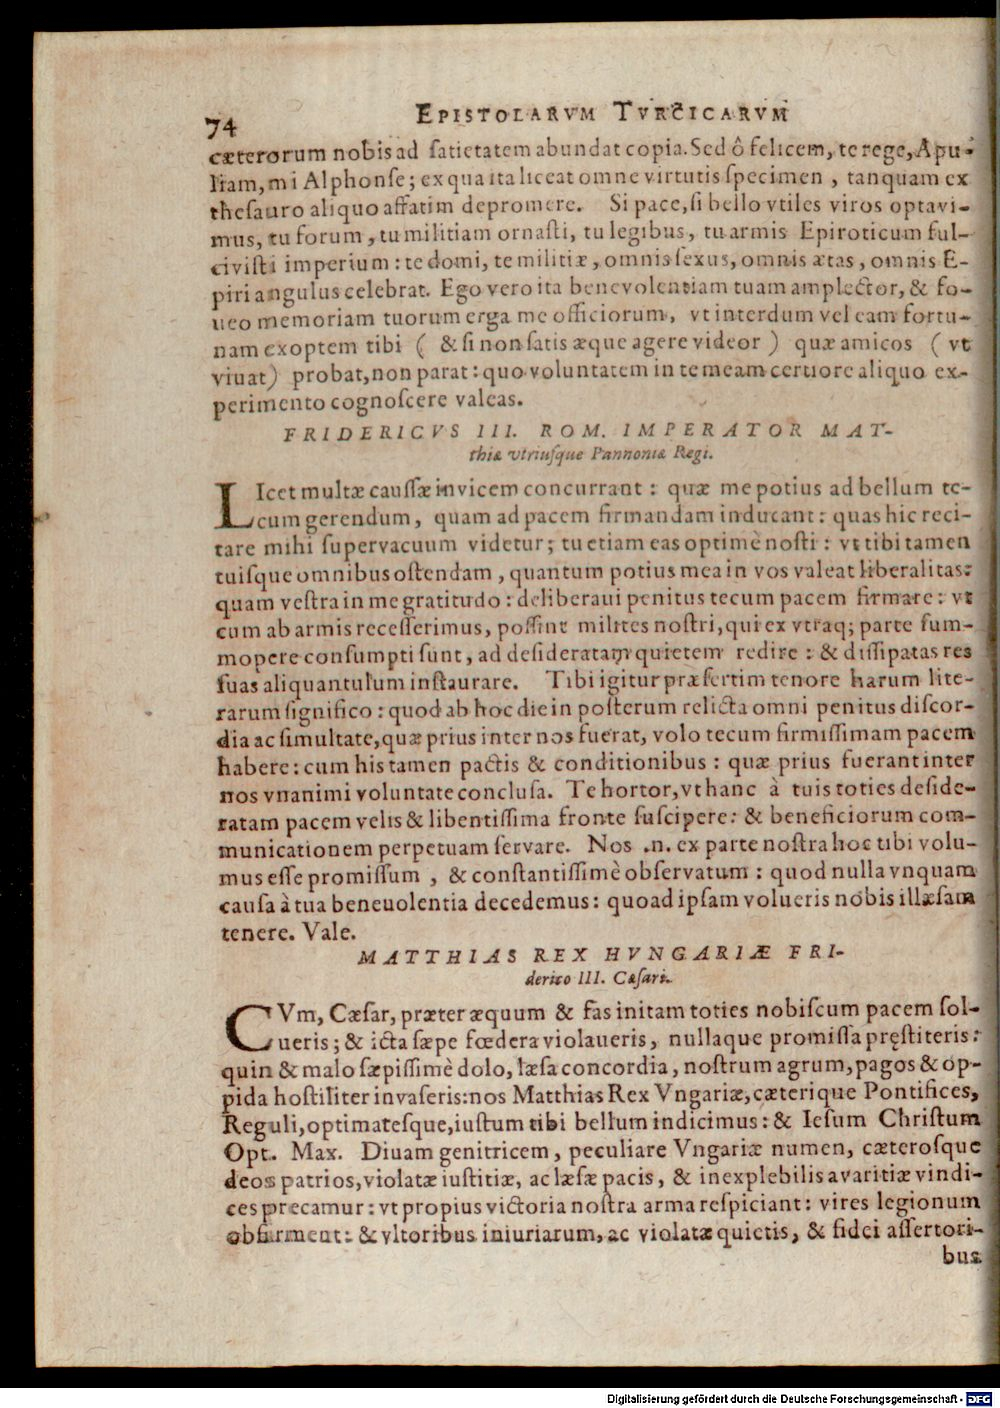 74
EPISTOLARVM TVRCICARVM
cæterorum nobis ad ſatietatem abundat copia. Sed ô felicem, te rege, Apu-
liam, mi Alphonſe; ex qua ita liceat omne virtutis ſpecimen, tanquam ex
theſauro aliquo affatim depromere. Si pace, ſi bello vtiles viros optavi-
mus, tu forum, tu militiam ornaſti, tu legibus, tu armis Epiroticum ful-
civiſti imperium: te domi, te militiæ, omnis ſexus, omnis ætas, omnis E-
piri angulus celebrat. Ego vero ita benevolentiam tuam amplector, & fo-
ueo memoriam tuorum erga me officiorum, vt interdum vel eam fortu-
nam exoptem tibi ( & ſi non ſatis æque agere videor ) quæ amicos ( vt
viuat) probat, non parat: quo voluntatem in te meam certiore aliquo ex-
perimento cognoſcere valeas.
FRIDERICVS III. ROM. IMPERATOR MAT-
thiæ vtriuſque Pannoniæ Regi.
LIcet multæ cauſſæ invicem concurrant: quæ me potius ad bellum te-
cum gerendum, quam ad pacem firmandam inducant: quas hic reci-
tare mihi ſupervacuum videtur; tu etiam eas optimè noſti: vt tibi tamen
tuiſque omnibus oſtendam, quantum potius mea in vos valeat liberalitas:
quam veſtra in me gratitudo: deliberaui penitus tecum pacem firmare: vt
cum ab armis receſſerimus, poſſint milites noſtri, qui ex vtraq; parte ſum-
mopere conſumpti ſunt, ad deſideratam quietem redire: & diſſipatas res
ſuas aliquantulum inſtaurare. Tibi igitur præſertim tenore harum lite-
rarum ſignifico: quod ab hoc die in poſterum relicta omni penitus diſcor-
dia ac ſimultate, quæ prius inter nos fuerat, volo tecum firmiſſimam pacem
habere: cum his tamen pactis & conditionibus: quæ prius fuerant inter
nos vnanimi voluntate concluſa. Te hortor, vt hanc à tuis toties deſide-
ratam pacem velis & libentiſſima fronte ſuſcipere: & beneficiorum com-
municationem perpetuam ſervare. Nos .n. ex parte noſtra hoc tibi volu-
mus eſſe promiſſum, & conſtantiſſimè obſervatum: quod nulla vnquam
cauſa à tua beneuolentia decedemus: quoad ipſam volueris nobis illæſam
tenere. Vale.
MATTHIAS REX HVNGARIÆ FRI-
derico III. Cæſari.
CVm, Cæſar, præter æquum & fas initam toties nobiſcum pacem ſol-
ueris; & icta ſæpe fœdera violaueris, nullaque promiſſa pręſtiteris:
quin & malo ſæpiſſimè dolo, læſa concordia, noſtrum agrum, pagos & op-
pida hoſtiliter invaſeris: nos Matthias Rex Vngariæ, cæterique Pontifices,
Reguli, optimateſque, iuſtum tibi bellum indicimus: & Ieſum Chriſtum
Opt. Max. Diuam genitricem, peculiare Vngariæ numen, cæteroſque
deos patrios, violatæ iuſtitiæ, ac læſæ pacis, & inexplebilis avaritiæ vindi-
ces precamur: vt propius victoria noſtra arma reſpiciant: vires legionum
obfirment: & vltoribus iniuriarum, ac violatæ quietis, & fidei aſſertori-
bus
Digitalisierung gefördert durch die Deutsche Forschungsgemeinschaft - DFG